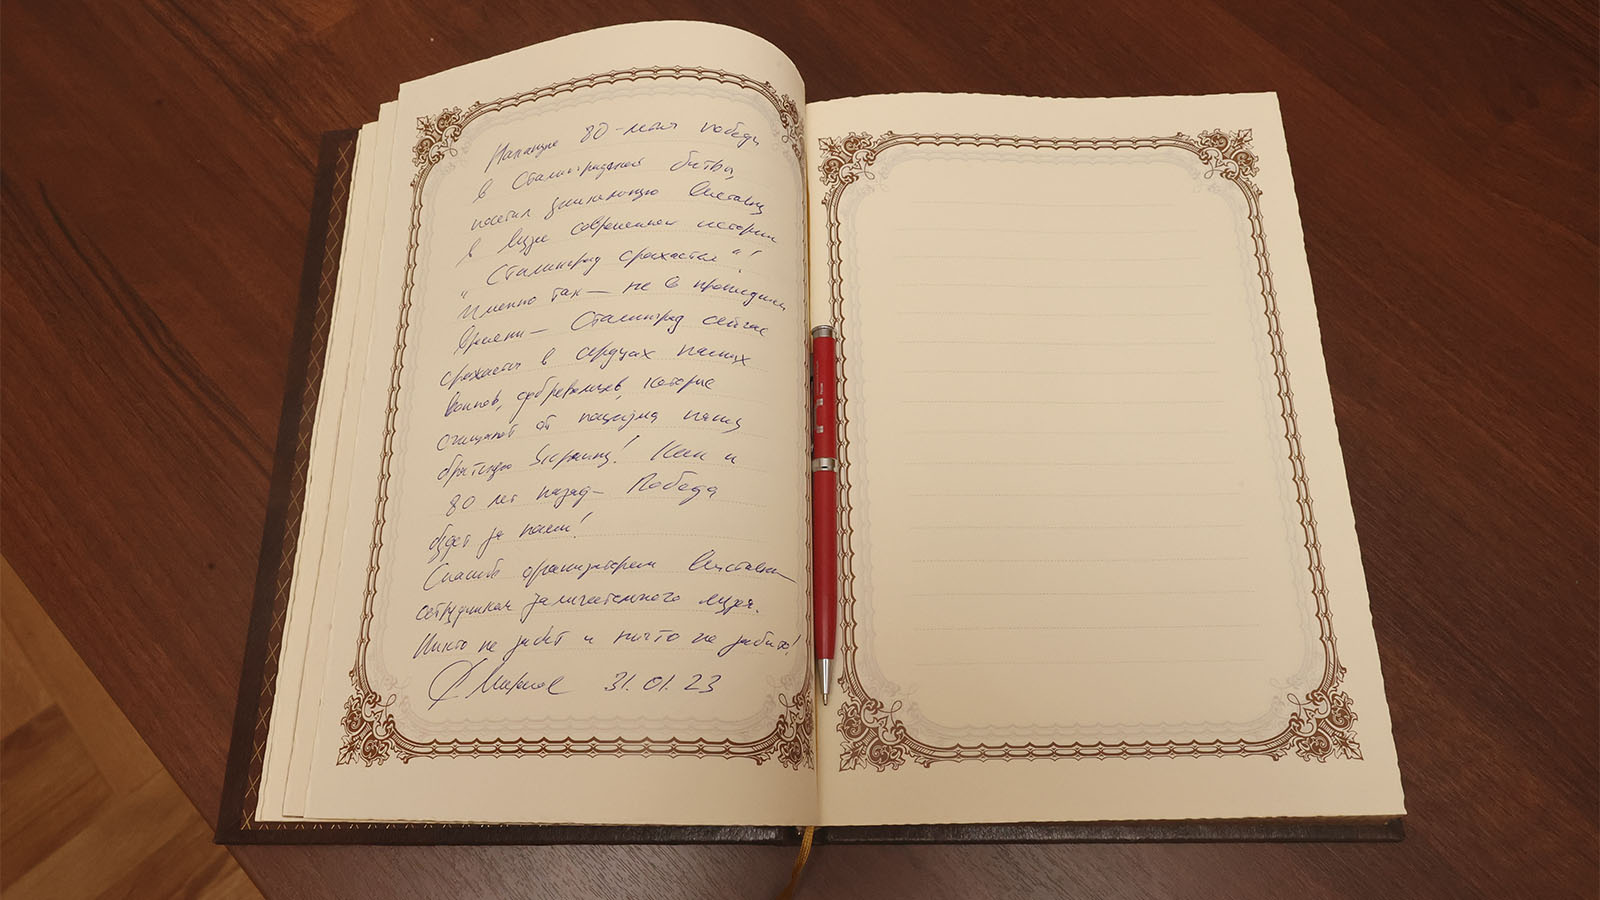 Накануне 80-летия победы
в Сталинградской битве,
посетил уникальную выставку
в музее современной истории
"Сталинград сражается"!
Именно так — не в прошедшем
времени — Сталинград сейчас
сражается в сердцах наших
воинов, добровольцев, которые
очищают от нацизма нашу
братскую Украину! Как и
80 лет назад — Победа
будет за нами!
Спасибо организаторам выставки
сотрудникам замечательного музея.
Никто не забыт и ничто не забыто!
31.01.23